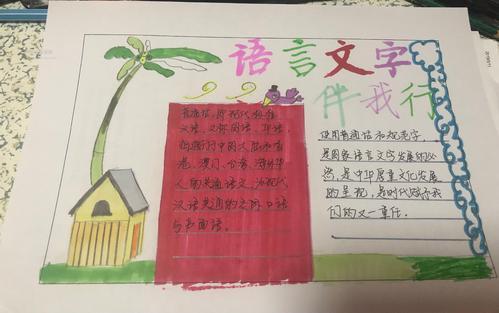 语言文字
伴我行
普通话,即现代标准
汉语,又称国语、华语,
中国人民和香
港、澳门、台湾、海外华
人的共通语文,为现代
汉语共通的交际口语
与书面语。
使用普通话和规范字
是国家语言文字发展的必
然,是中华民族文化发展
的呈现,是时代赋予我
们的又一重任。